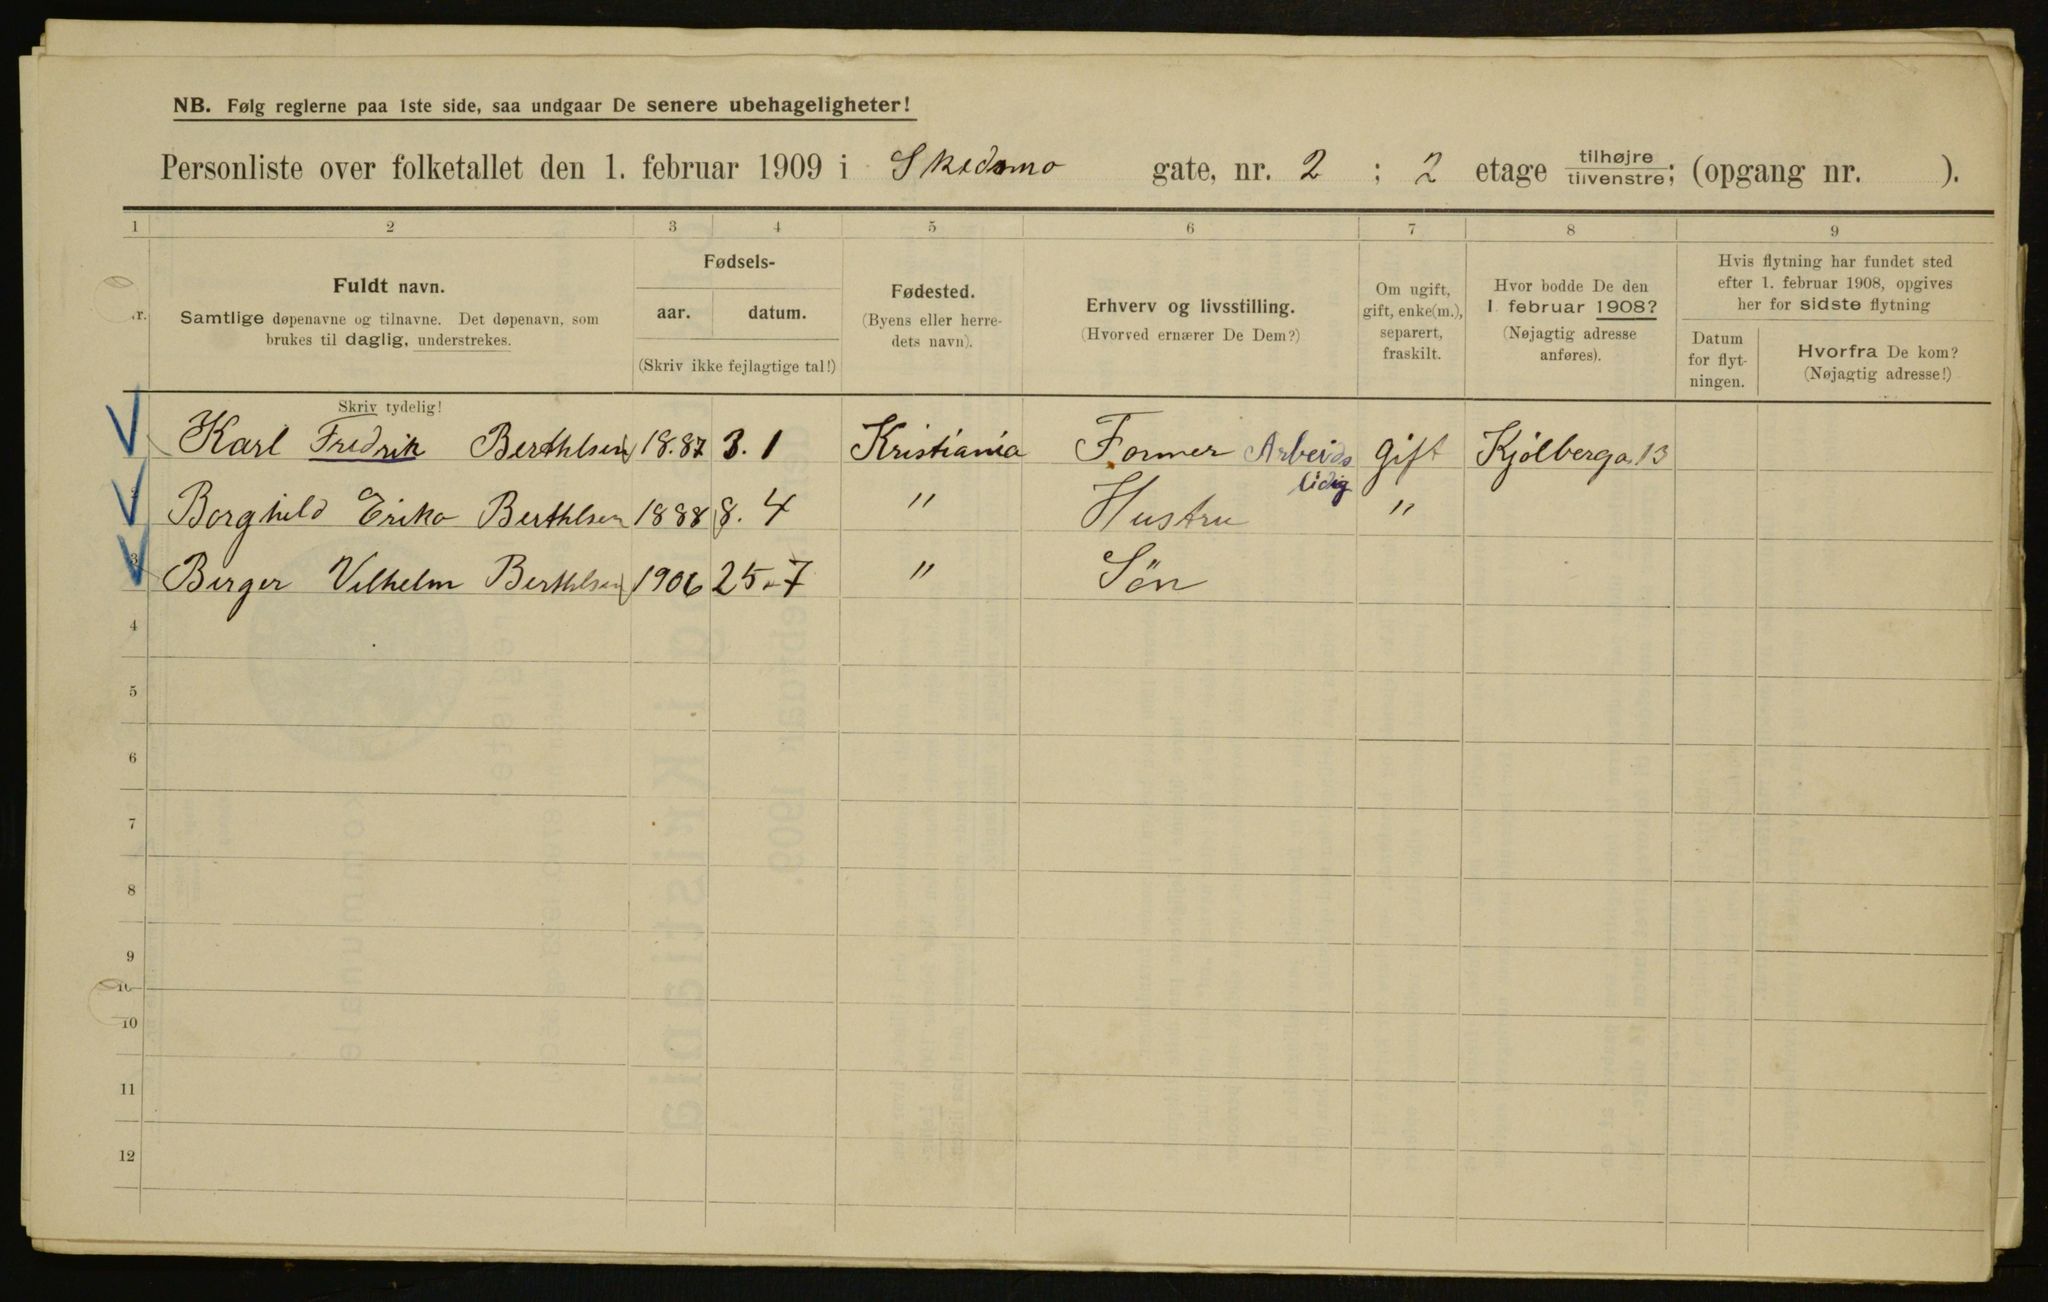 NB. Følg reglerne paa 1ste side, saa undgaar De senere ubehageligheter!
Personliste over folketallet den 1. februar 1909 i Skedsmo gate, nr. 2 ; 2 etage tilhøjre tilvenstre; (opgang nr. ).
1 2 3 4 5 6 7 8 9
Fuldt navn.
Samtlige døpenavne og tilnavne. Det døpenavn, som
brukes til daglig, understrekes.
Skriv tydelig!
Fødsels-
aar. datum.
(Skriv ikke fejlagtige tal!)
Fødested.
(Byens eller herre-
dets navn).
Erhverv og livsstilling.
(Hvorved ernærer De Dem?)
Om ugift,
gift, enke(m.),
separert,
fraskilt.
Hvor bodde De den
1. februar 1908?
(Nøjagtig adresse
anføres).
Hvis flytning har fundet sted
efter 1. februar 1908, opgives
her for sidste flytning
Datum
for flyt-
ningen.
Hvorfra De kom?
(Nøjagtig adresse!)
Karl Fredrik Berthlsen 18.87 3. 1 Kristiania Former Arbeids ledig gift Kjølberga. 13
Borghild Erika Berthlsen 1888 8. 4 " Hustru "
3 Birger Vilhelm Berthlsen 1906 25-7 " Søn
4
5
6
7
8
9
10
10
11
12